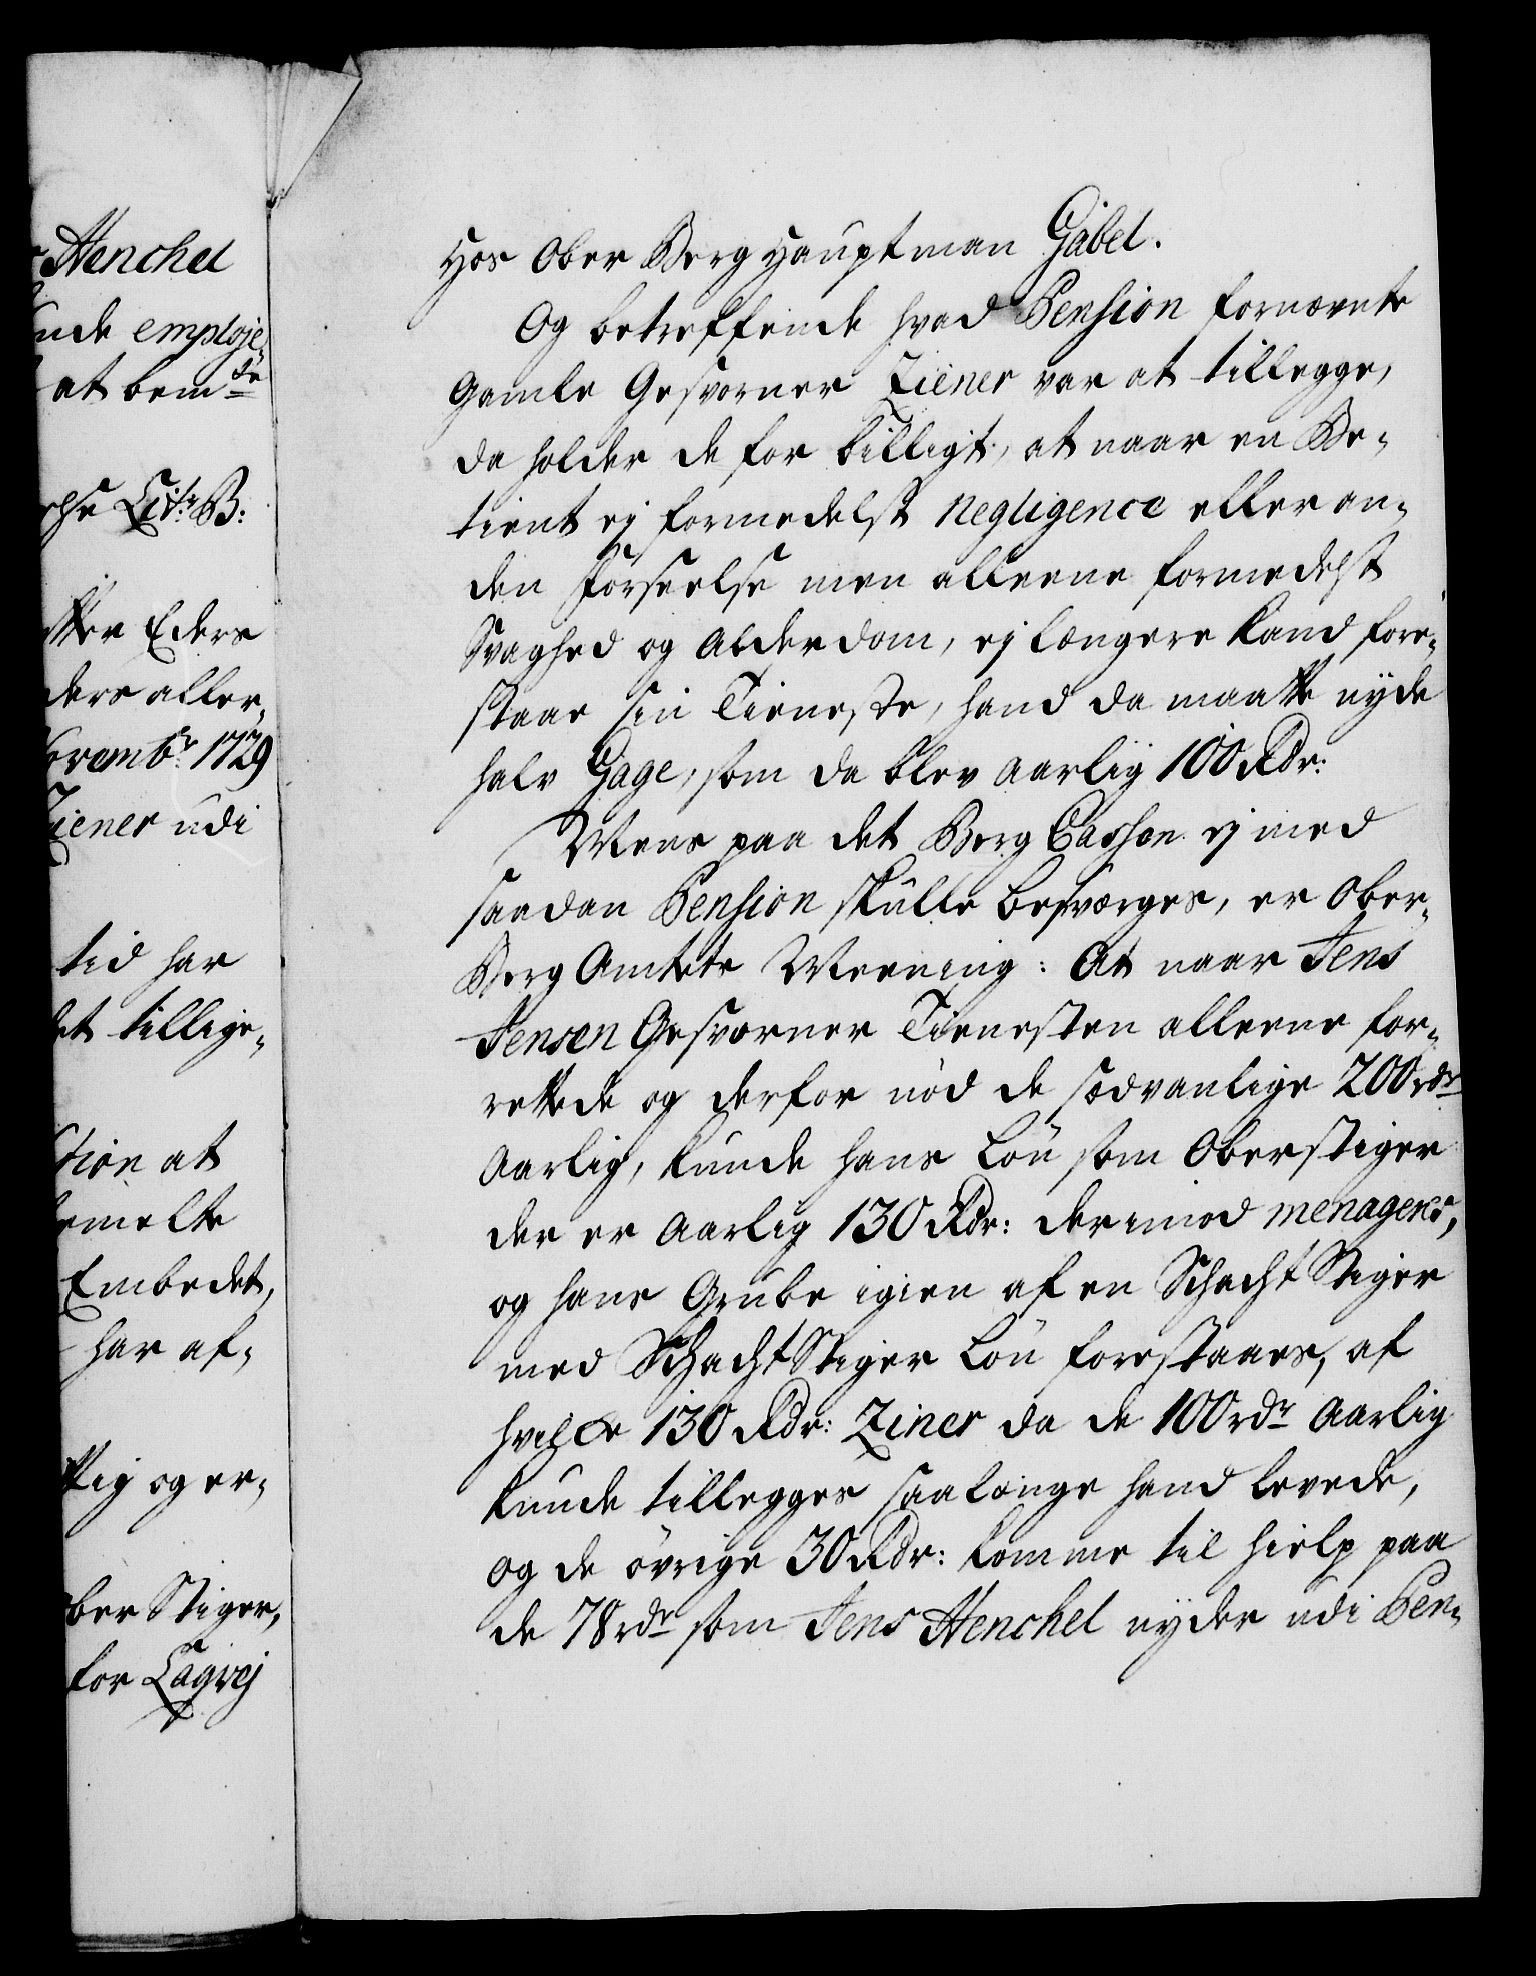 Henchel
nde employe,
at bemte
Lit: B:
Eders
ders aller,
Novembr: 1729
Ziener udi
tid har
et tillige,
tion at
emelte
Embedet,
har af,
tig og er,
ber Stiger,
for Lagvej
Hos Ober Berg Hauptman Gabel.
Og betreffende hvad Pension fornævnte
Gamle Gesvorner Ziener var at tillegge,
da holder de for billigt, at naar en Be,
tient ej formedelst Negligence eller an,
den Forseelse men alleene formedelst
Svaghed og Alderdom, ej længere kand fore,
staae sin Tieneste, hand da maatte nyde
halv Gage, som da blev aarlig 100 Rdr:
Mens paa det Berg Cassen ej med
saadan Pension skulle besværges, er Ober,
Berg Amtets Meening: At naar Jens
Jensen Gesvorner Tienesten alleene for,
rettede og derfor nød de sædvanlige 200 rdr
Aarlig, kunde hans Løn som Oberstiger
der er Aarlig 130 Rdr: derimod menageres,
og hans Grube igien af en Schacht Stiger
med Schacht Stiger Løn forestaaes, af
hvilke 130 Rdr: Ziner da de 100 rdr Aarlig
kunde tillegges saalænge hand levede,
og de øvrige 30 Rdr: komme til hielp paa
de 78 rdr som Jens Henchel nyder udi Pen,